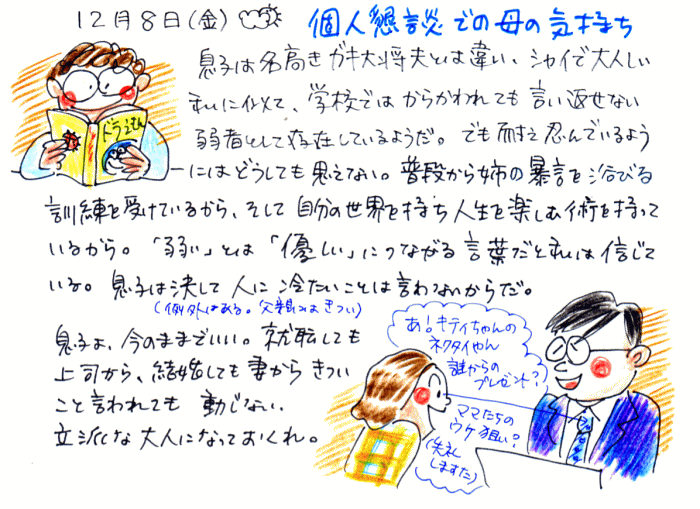 12月8日(金)
個人懇談での母の気持ち
息子は名高きガキ大将夫とは違い、シャイで大人しい
私に似て、学校ではからかわれても言い返せない
弱者として存在しているようだ。でも耐え忍んでいるよう
にはどうしても思えない。普段から姉の暴言を浴びる
訓練を受けているから、そして自分の世界を持ち人生を楽しむ術を持って
いるから。「弱い」とは「優しい」につながる言葉だと私は信じて
いる。息子は決して人に冷たいことは言わないからだ。
(例外はある。父親にはきつい)
息子よ、今のままでいい。就職しても
上司から、結婚しても妻からきつい
こと言われても動じない、
立派な大人になっておくれ。
ドラえもん
あ!キティちゃんの
ネクタイやん
誰からの
プレゼント?
ママたちの
ウケ狙い?
(失礼
しますた)